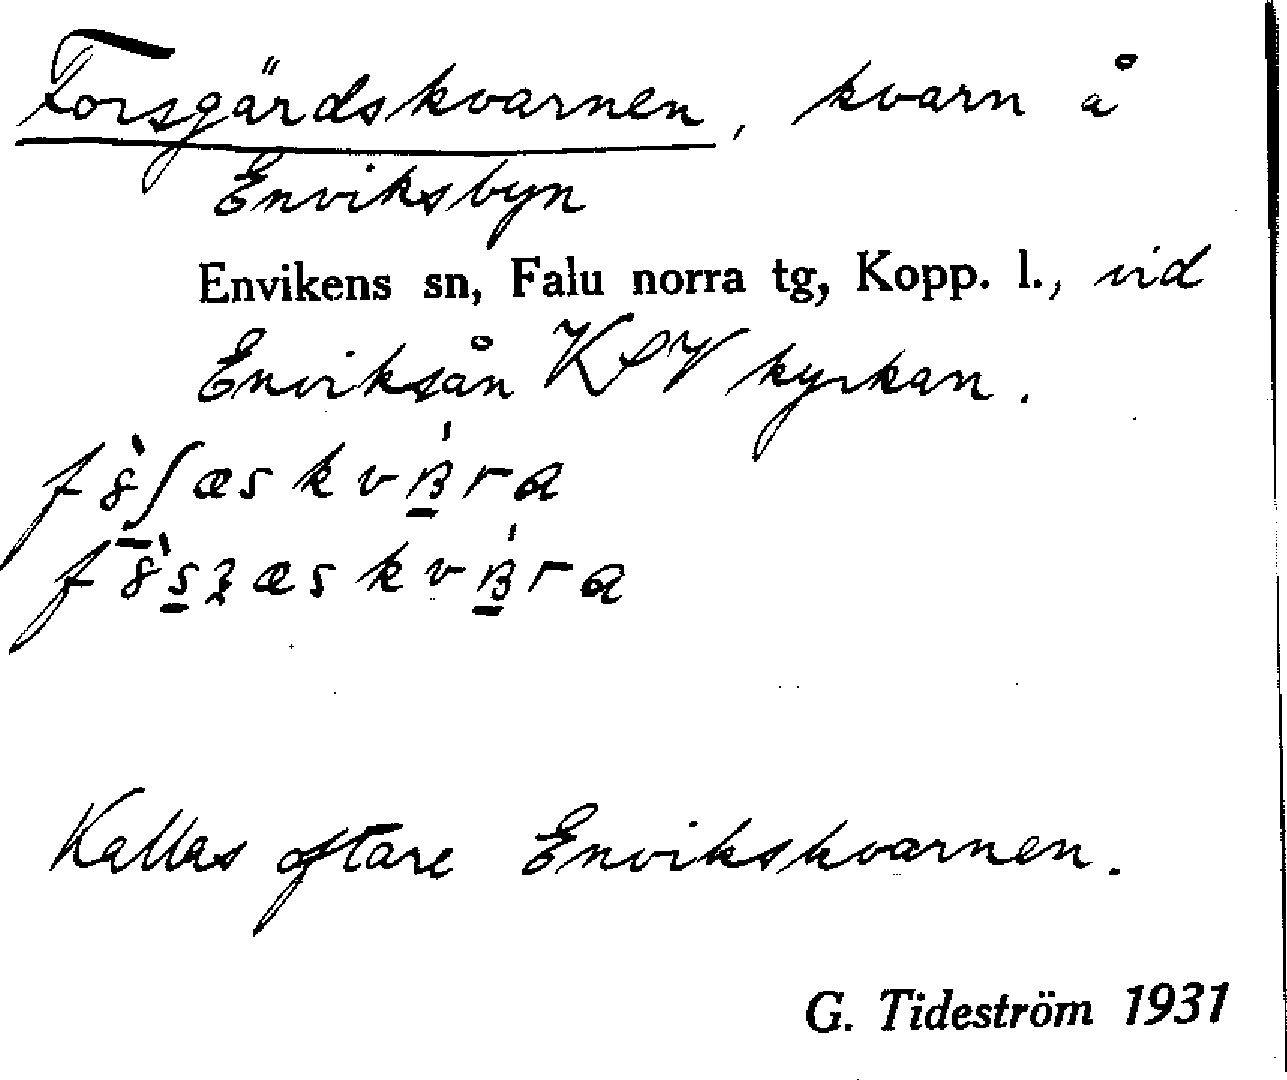 Forsgärdskvarnen, kvarn å
Enviksbyn
Envikens sn, Falu norra tg, Kopp. l., vid
Enviksån kyrkan.
Kallas oftare Envikskvarnen.
G. Tideström 1931